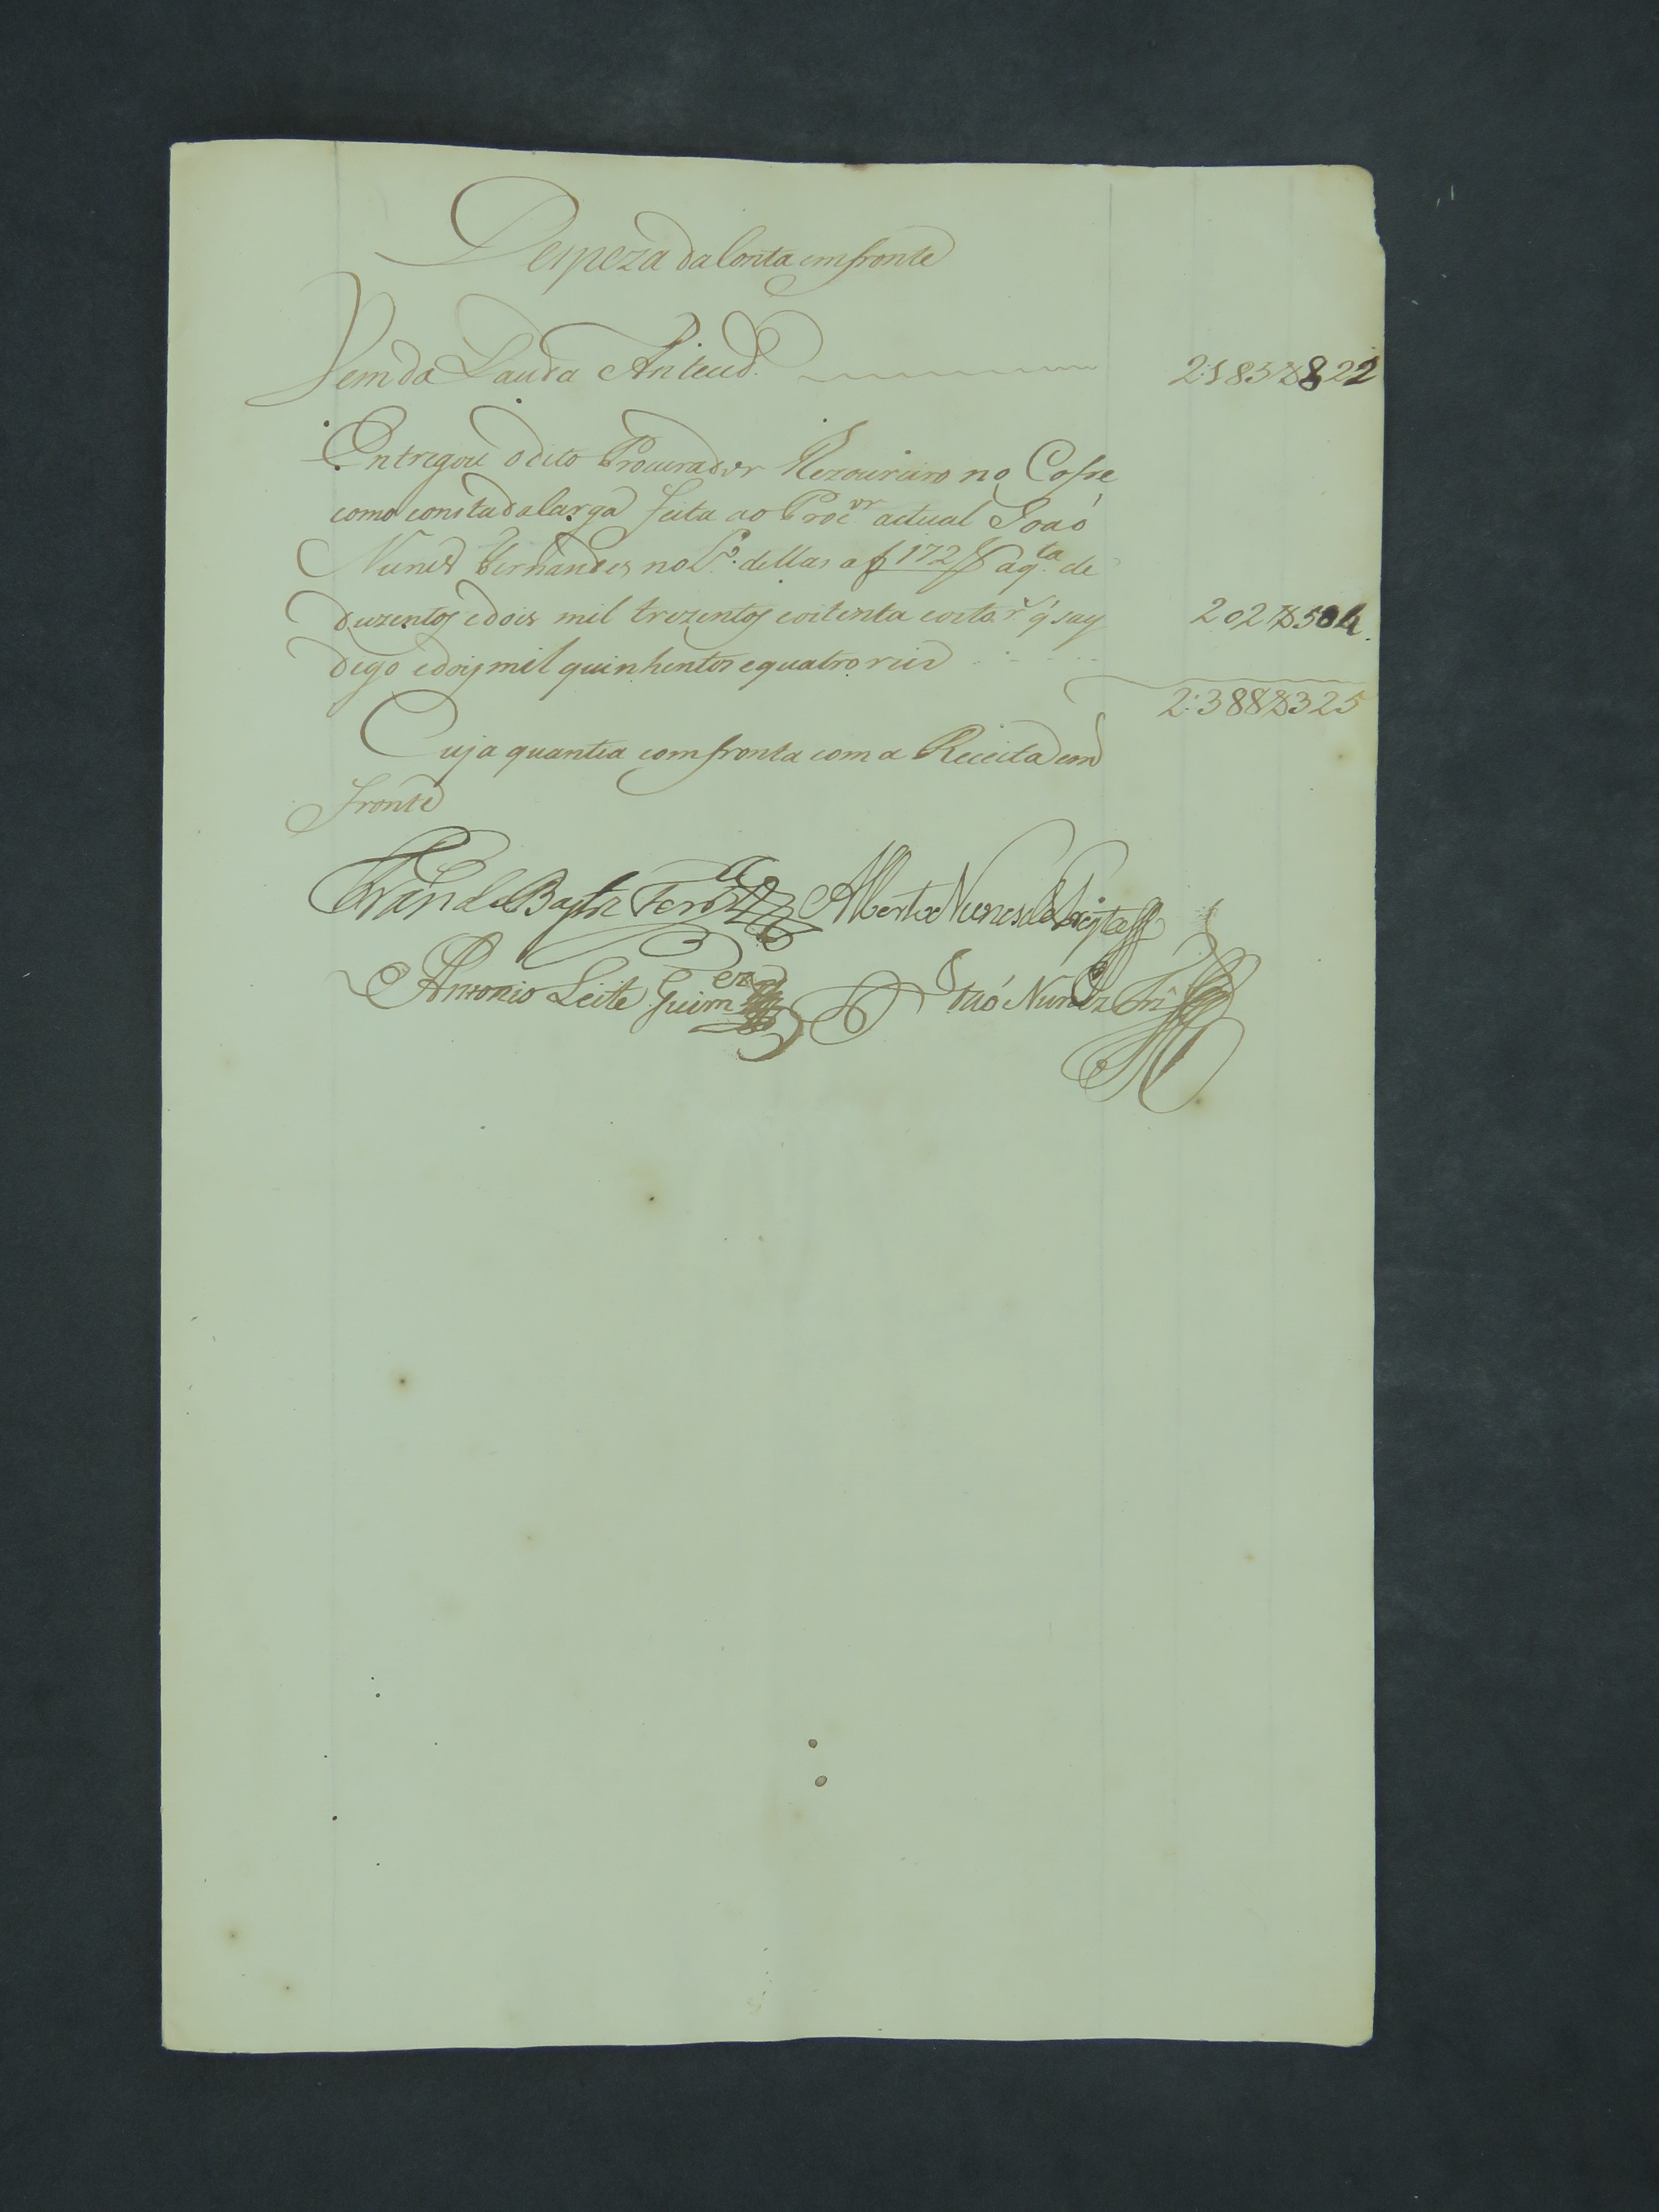 Despeza da Conta em fronte
Vem da Lauda Anteced.e 2:185$822
Entregou o dito Procurador Thezoureiro no Cofre
como consta da larga feita ao Proc.or actual Joaõ
Nunes Fernandes no L.o dellas a f 172 a q.ta de
duzentos e dois mil trezentos e oitenta e oito r.s q' say 202$504
digo e dois mil quinhentos e quatro reis
2:388$325
Cuja quantia comfronta com a Receita em
fronte
Alberto Nunes da
Antonio Leite Guim.es Joaó Nunez